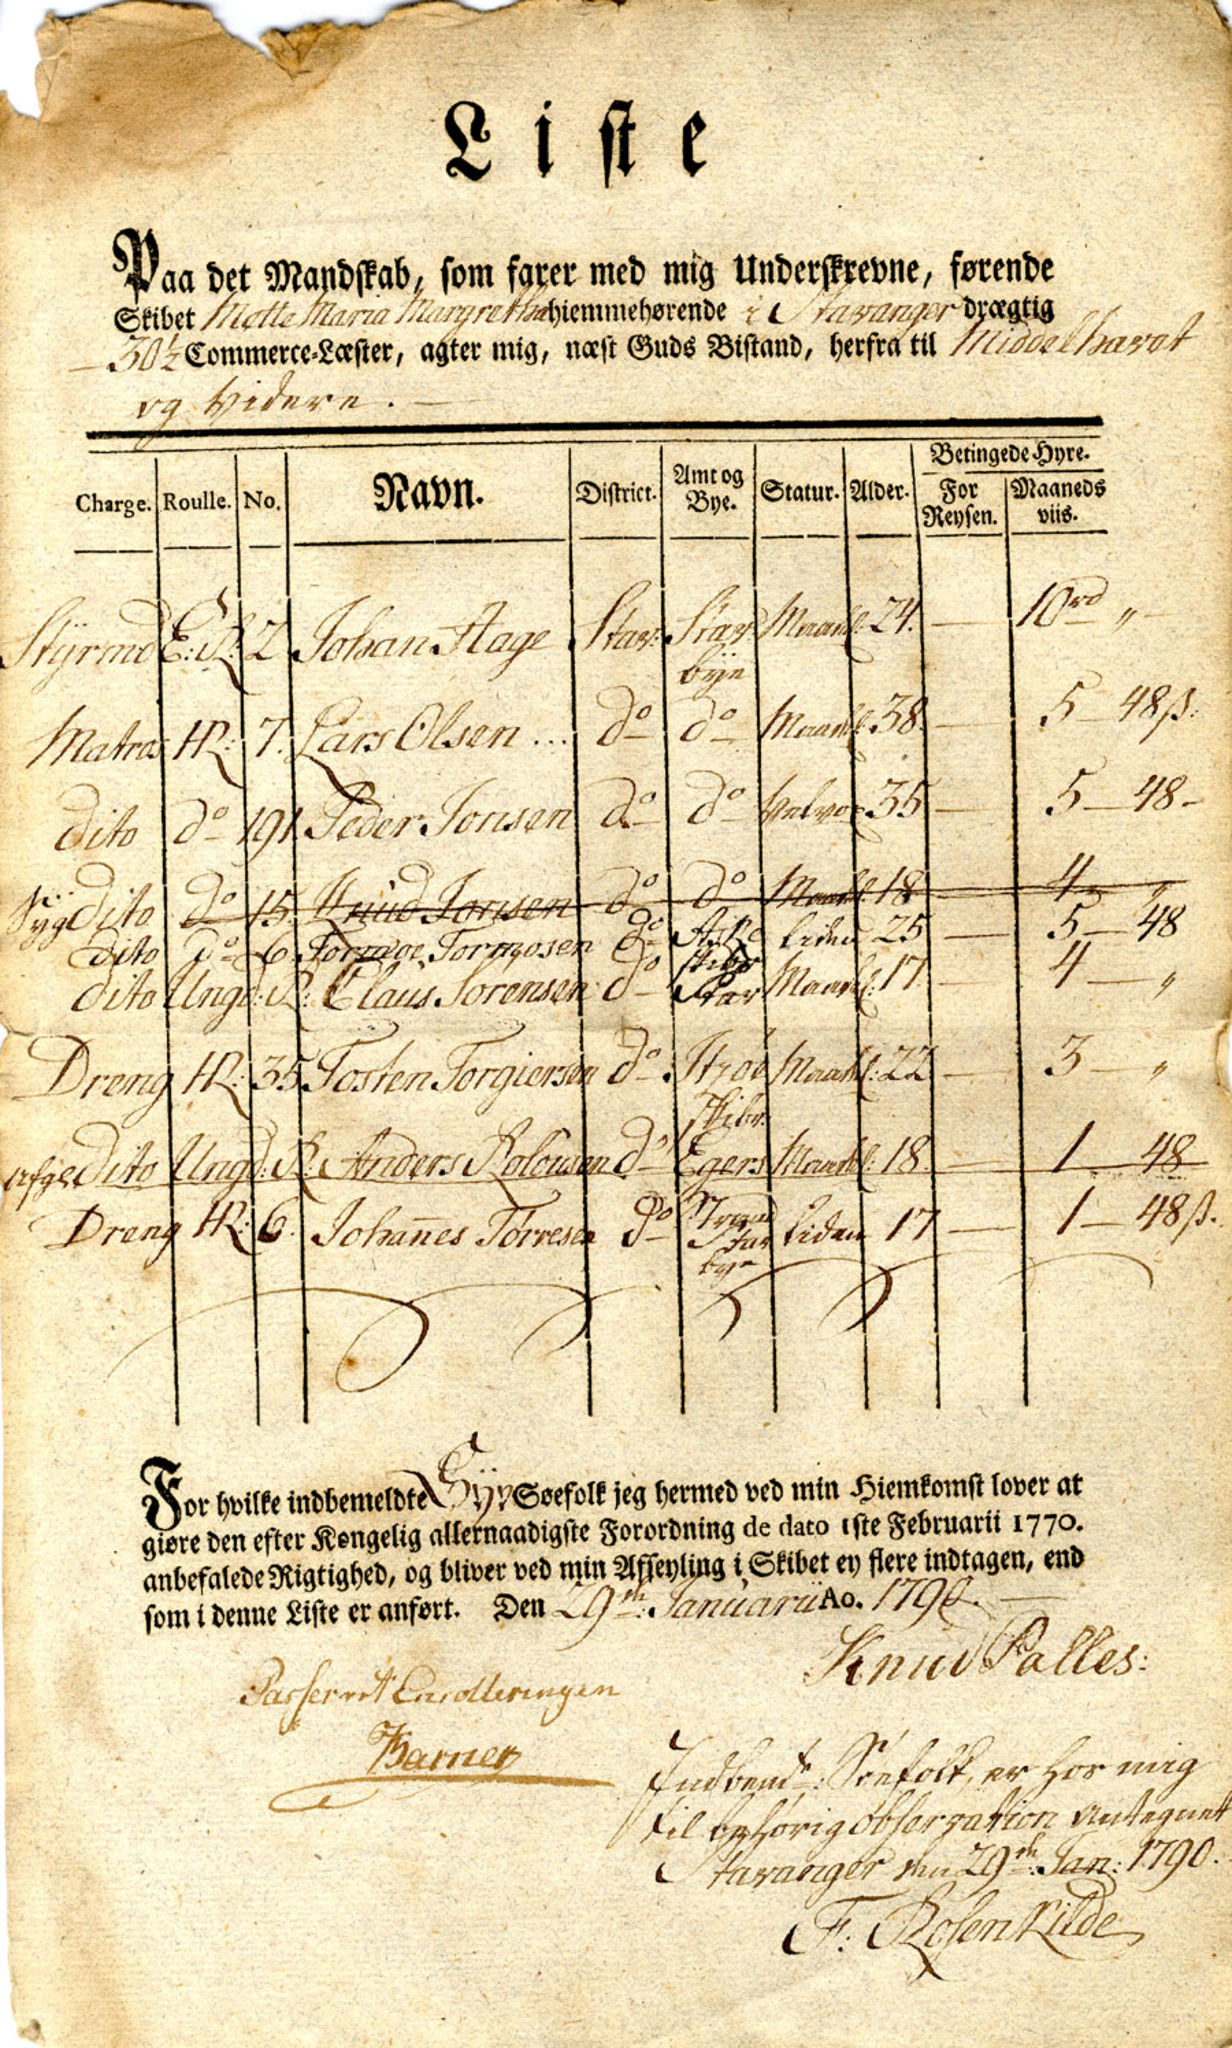 Liste
Paa det Mandskab, som farer med mig Underskrevne, førende
Skibet Mette Maria Margretha hiemmehørende i Stavanger drægtig
30½ Commerce-Læster, agter mig, næst Guds Bistand, herfra til Middelhavet
og videre.
Betingede Hyre.
Charge. Roulle. No. Navn. District. Amt og Bye. Statur. Alder. For Reysen. Maaneds viis.
Styrmd E: R: 2 Johan Hage Stav: Stav bye Maadl: 24. — 10 rd „
Matros HR: 7. Lars Olsen ... do do Maadl 38. — 5 — 48 ß.
dito do 191 Peder Jonsen do do 35 — 5 — 48 -
Syg dito do 15. Knud Jonsen do do Maadl 18 — 4 „
dito do 6 Tormoe Tormosen do liden 25 — 5 — 48
dito Ungd: R: Claus Sorensen do Stav Maadl: 17 — 4 — „
Dreng HR: 35 Tosten Torgiersen do Maadl: 22 — 3 — „
dito Ungd: R: Anders do Egers Maadl: 18. — 1 48
Dreng HR: 6. Johannes Torresen do Stav bye liden 17 — 1 — 48 ß.
For hvilke indbemeldte Syv Søefolk jeg hermed ved min Hiemkomst lover at
giøre den efter Kongelig allernaadigste Forordning de dato 1ste Februarii 1770.
anbefalede Rigtighed, og bliver ved min Afseyling i Skibet ey flere indtagen, end
som i denne Liste er anført. Den 29de: Januarii Ao. 1790. —
Knud Palles:
Passeret Enrolleringen
Barner
Indbemte: Søefolk, er hos mig
til behörig observation antegnet
Stavanger den 29de: Jan: 1790.
F: Rosenkilde